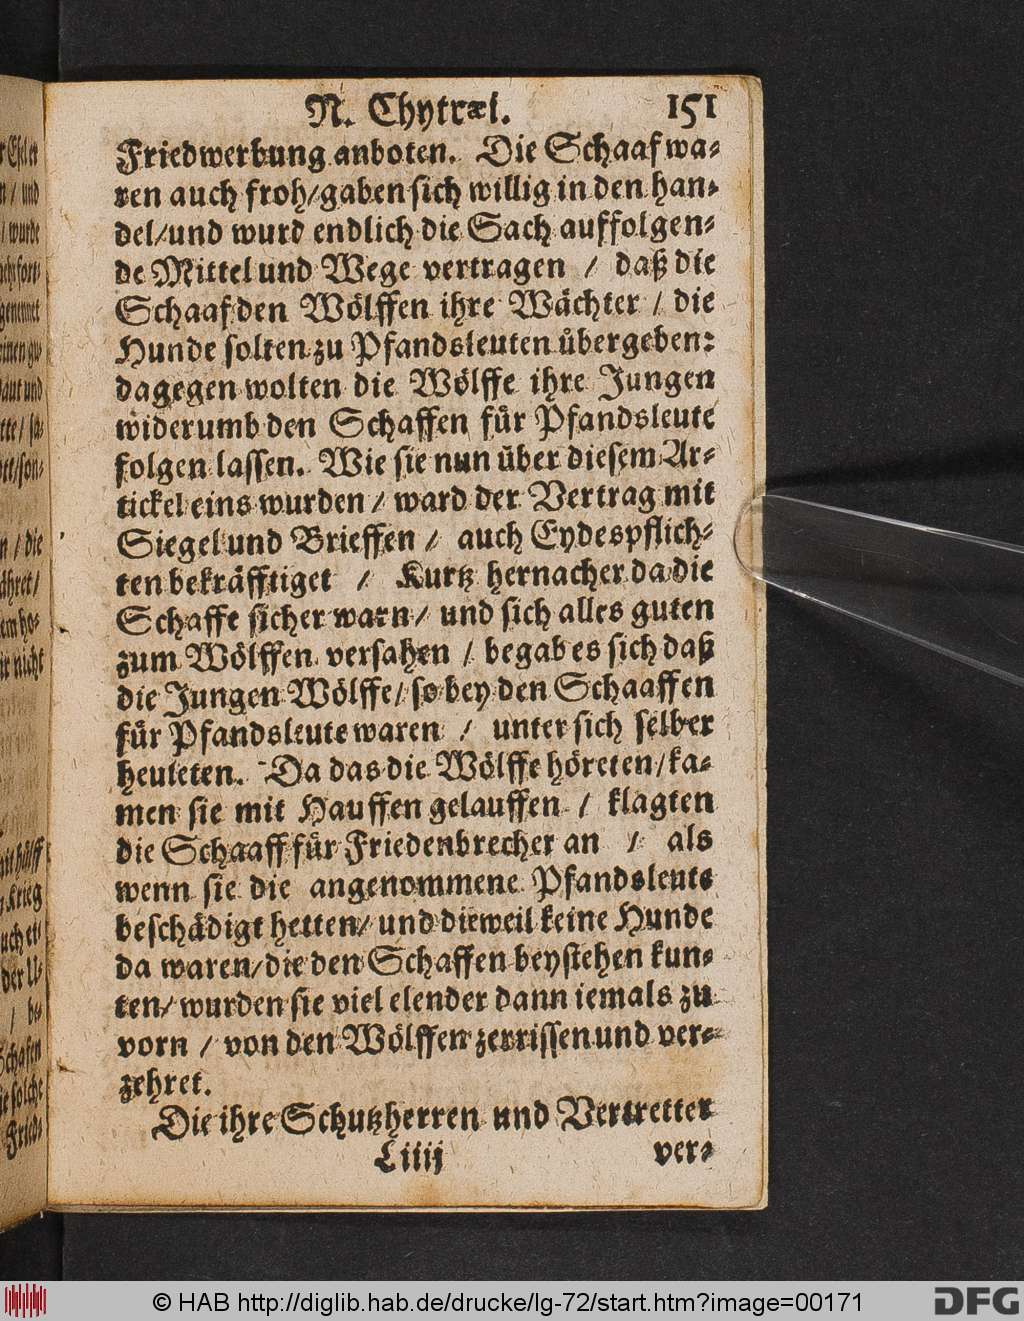 N. Chytræi. 151
Friedwerbung anboten. Die Schaaf wa-
ren auch froh/ gaben sich willig in den han-
del/ und wurd endlich die Sach auff folgen-
de Mittel und Wege vertragen / daß die
Schaaf den Wölffen ihre Wächter / die
Hunde solten zu Pfandsleuten übergeben:
dagegen wolten die Wölffe ihre Jungen
widerumb den Schaffen für Pfandsleute
folgen lassen. Wie sie nun über diesem Ar-
tickel eins wurden / ward der Vertrag mit
Siegel und Brieffen / auch Eydespflich-
ten bekräfftiget / Kurtz hernacher da die
Schaffe sicher warn / und sich alles guten
zum Wölffen versahen / begab es sich daß
die Jungen Wölffe / so bey den Schaaffen
für Pfandsleute waren / unter sich selber
heuleten. Da das die Wölffe höreten / ka-
men sie mit Hauffen gelauffen / klagten
die Schaaff für Friedenbrecher an / als
wenn sie die angenommene Pfandsleute
beschädigt hetten / und dieweil keine Hunde
da waren / die den Schaffen beystehen kun-
ten / wurden sie viel elender dann iemals zu
vorn / von den Wölffen zerrissen und ver-
zehret.
Die ihre Schutzherren und Vertretter
L iiij ver-
© HAB http://diglib.hab.de/drucke/lg-72/start.htm?image=00171
DFG